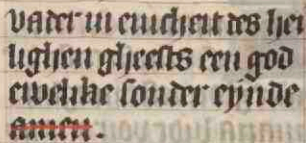 vader in eincheit des hei
lighen gheests een god
ewelike sonder eynde
amen.